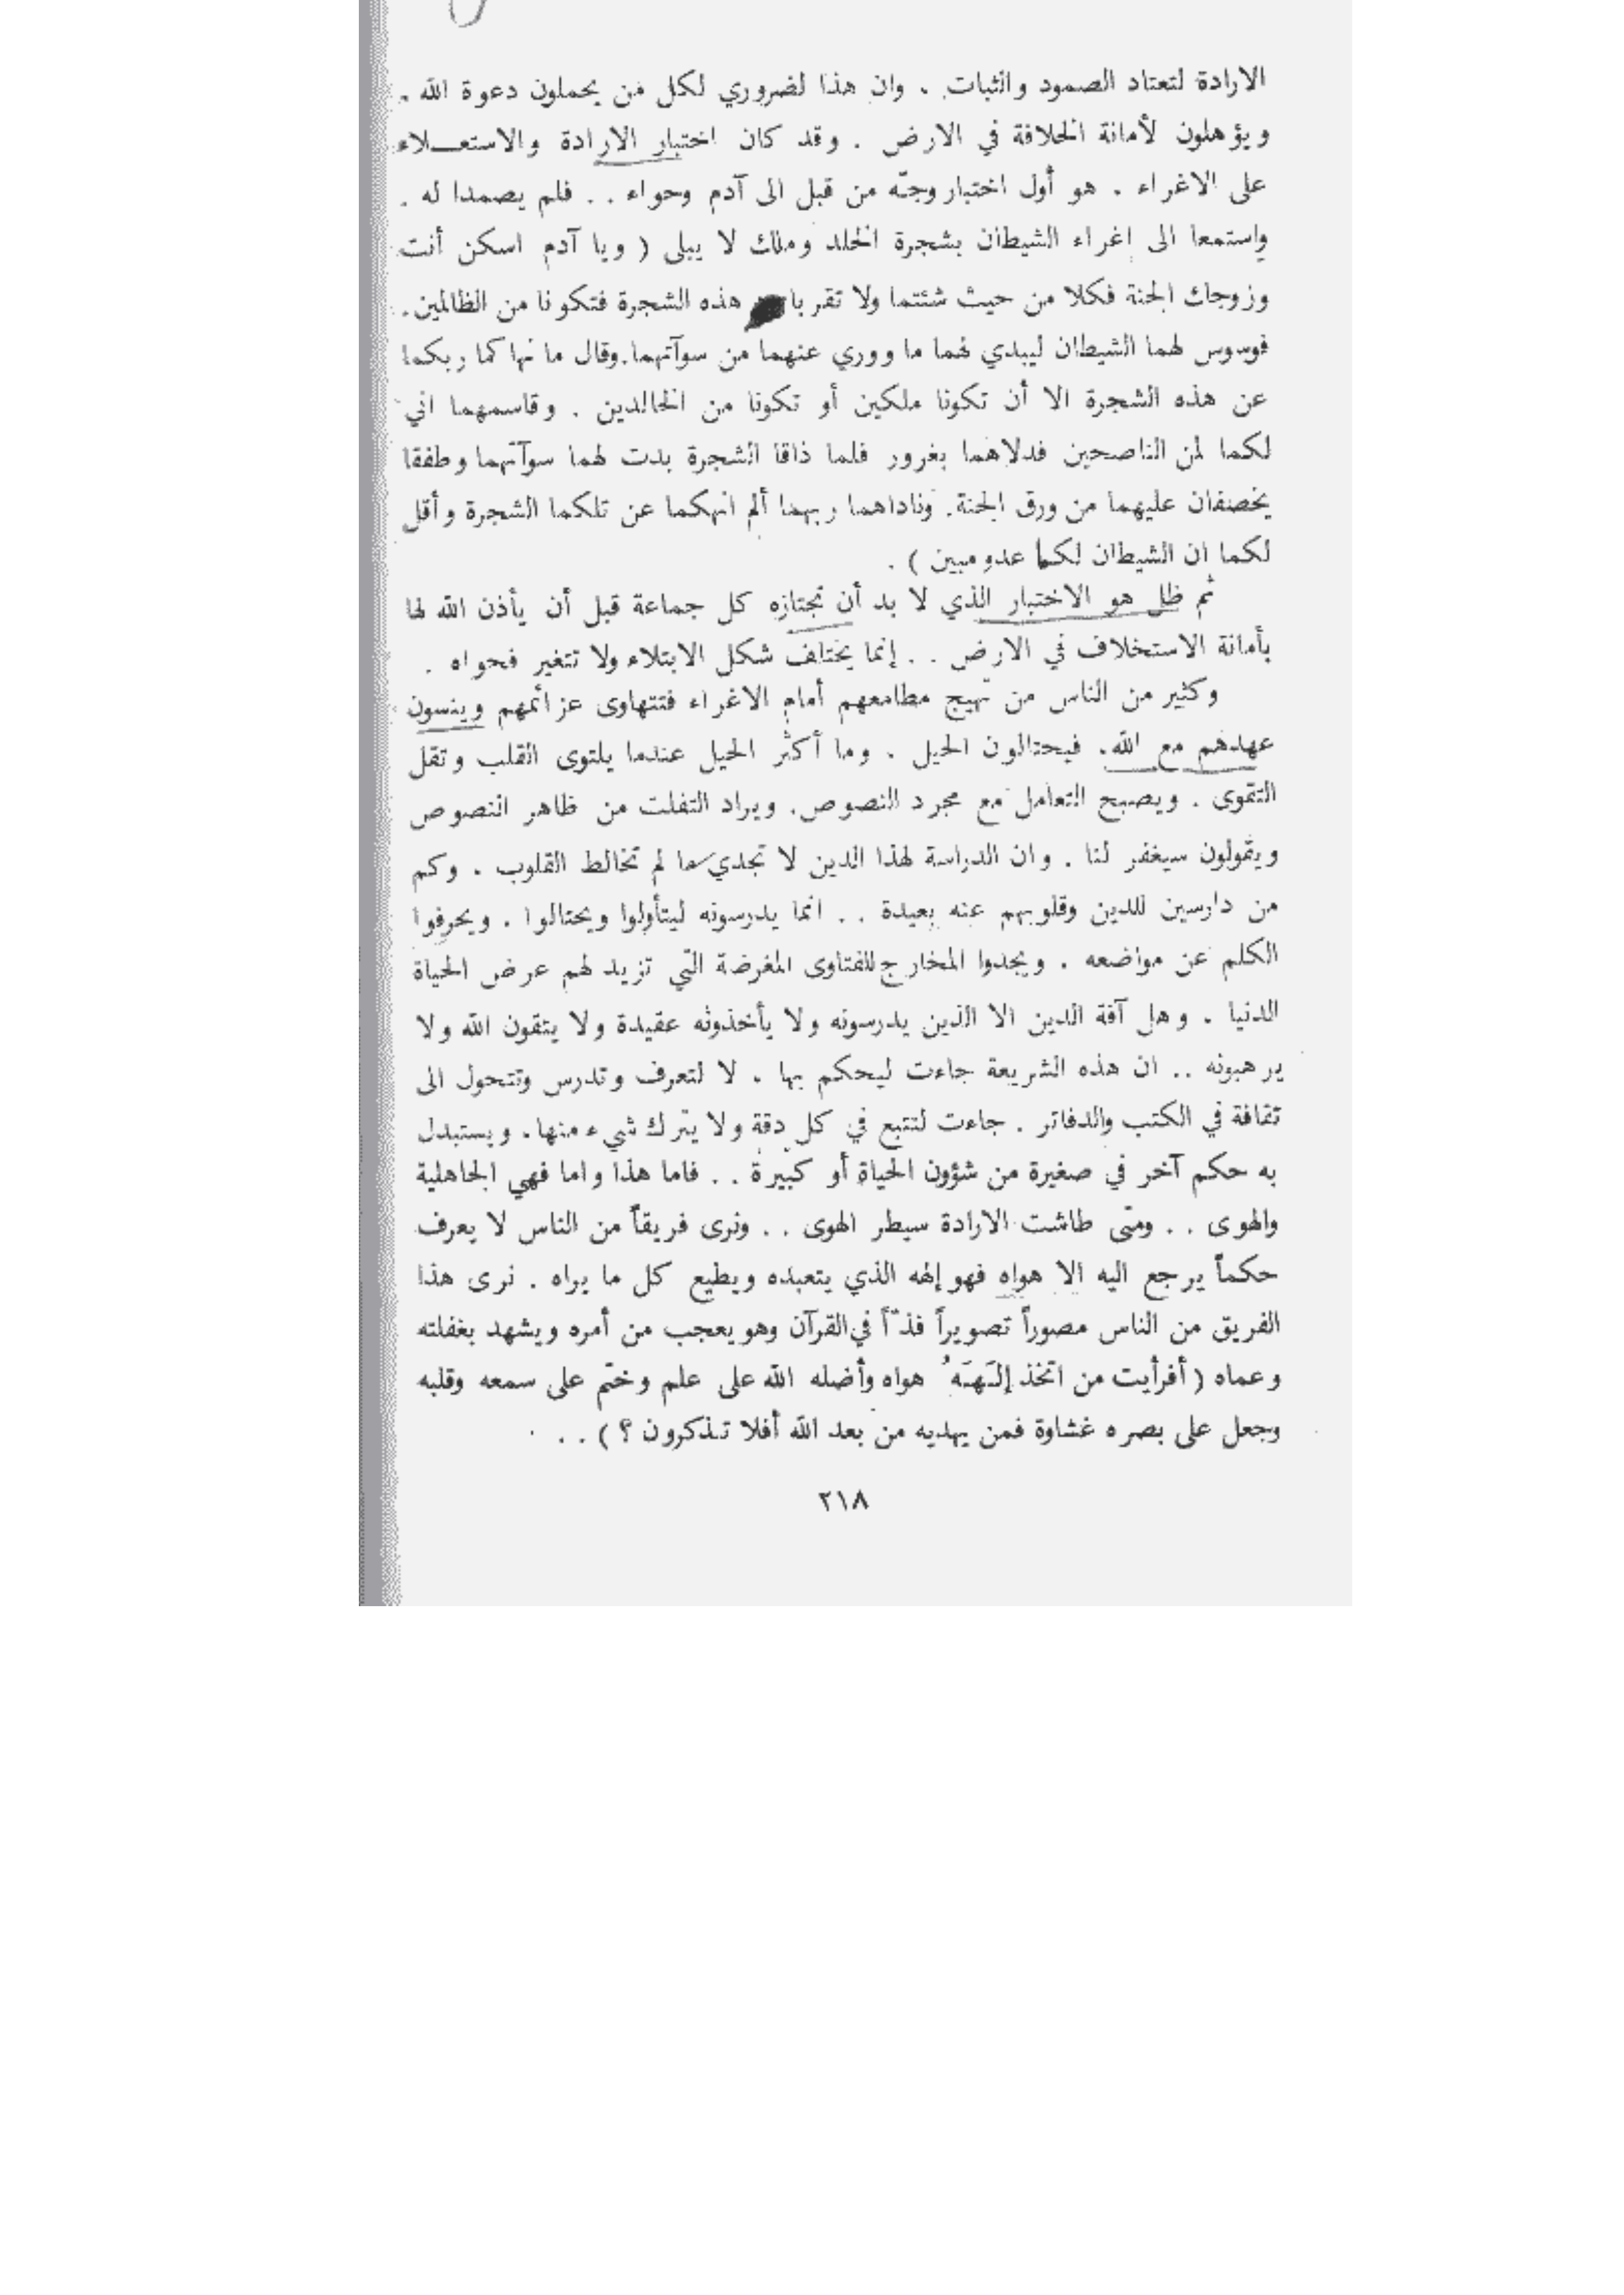 الارادة لتعتاد الصمود والثبات . وان هذا لضروري لكل من يحملون دعوة الله .
ويؤهلون لأمانة الخلافة في الارض . وقد كان اختبار الارادة والاستعـــلاء
على الاغراء . هو أول اختبار وجّه من قبل الى آدم وحواء . . فلم يصمدا له .
واستمعا الى اغراء الشيطان بشجرة الخلد وملك لا يبلى ( ويا آدم اسكن أنت
وزوجك الجنة فكلا من حيث شئتما ولا تقربا هذه الشجرة فتكونا من الظالمين .
فوسوس لهما الشيطان ليبدي لهما ما ووري عنهما من سوآتهما . وقال ما نهاكما ربكما
عن هذه الشجرة الا أن تكونا ملكين أو تكونا من الخالدين . وقاسمهما اني
لكما لمن الناصحين فدلاهما بغرور فلما ذاقا الشجرة بدت لهما سوآتهما وطفقا
يخصفان عليهما من ورق الجنة . وناداهما ربهما ألم انهكما عن تلكما الشجرة وأقل
لكما ان الشيطان لكما عدو مبين ) .
ثم ظل هو الاختبار الذي لا بد أن تجتازه كل جماعة قبل أن يأذن الله لها
بأمانة الاستخلاف في الارض . . إنما يختلف شكل الابتلاء ولا تتغير فحواه .
وكثير من الناس من تهيج مطامعهم أمام الاغراء فتتهاوى عزائمهم وينسون
عهدهم مع الله . فيحتالون الحيل . وما أكثر الحيل عندما يلتوى القلب وتقل
التقوى . ويصبح التعامل مع مجرد النصوص . ويراد التفلت من ظاهر النصوص
ويقولون سيغفر لنا . وان الدراسة لهذا الدين لا تجدي ما لم تخالط القلوب . وكم
من دارسين للدين وقلوبهم عنه بعيدة . . انما يدرسونه ليتأولوا ويحتالوا . ويحرفوا
الكلم عن مواضعه . ويجدوا المخارج للفتاوى المغرضة التي تزيد لهم عرض الحياة
الدنيا . وهل آفة الدين الا الذين يدرسونه ولا يأخذونه عقيدة ولا يتقون الله ولا
يرهبونه .. ان هذه الشريعة جاءت ليحكم بها . لا لتعرف وتدرس وتتحول الى
ثقافة في الكتب والدفاتر . جاءت لتتبع في كل دقة ولا يترك شيء منها . ويستبدل
به حكم آخر في صغيرة من شؤون الحياة أو كبيرة . . فاما هذا واما فهي الجاهلية
والهوى . . ومتى طاشت الارادة سيطر الهوى . . ونرى فريقاً من الناس لا يعرف
حكماً يرجع اليه الا هواه فهو إلهه الذي يتعبده ويطيع كل ما يراه . نرى هذا
الفريق من الناس مصوراً تصويراً فذّاً في القرآن وهو يعجب من أمره ويشهد بغفلته
وعماه ( أفرأيت من اتخذ إلَـهَـهُ هواه وأضله الله على علم وختم على سمعه وقلبه
وجعل على بصره غشاوة فمن يهديه من بعد الله أفلا تـذكرون ؟ ) . .
٢١٨